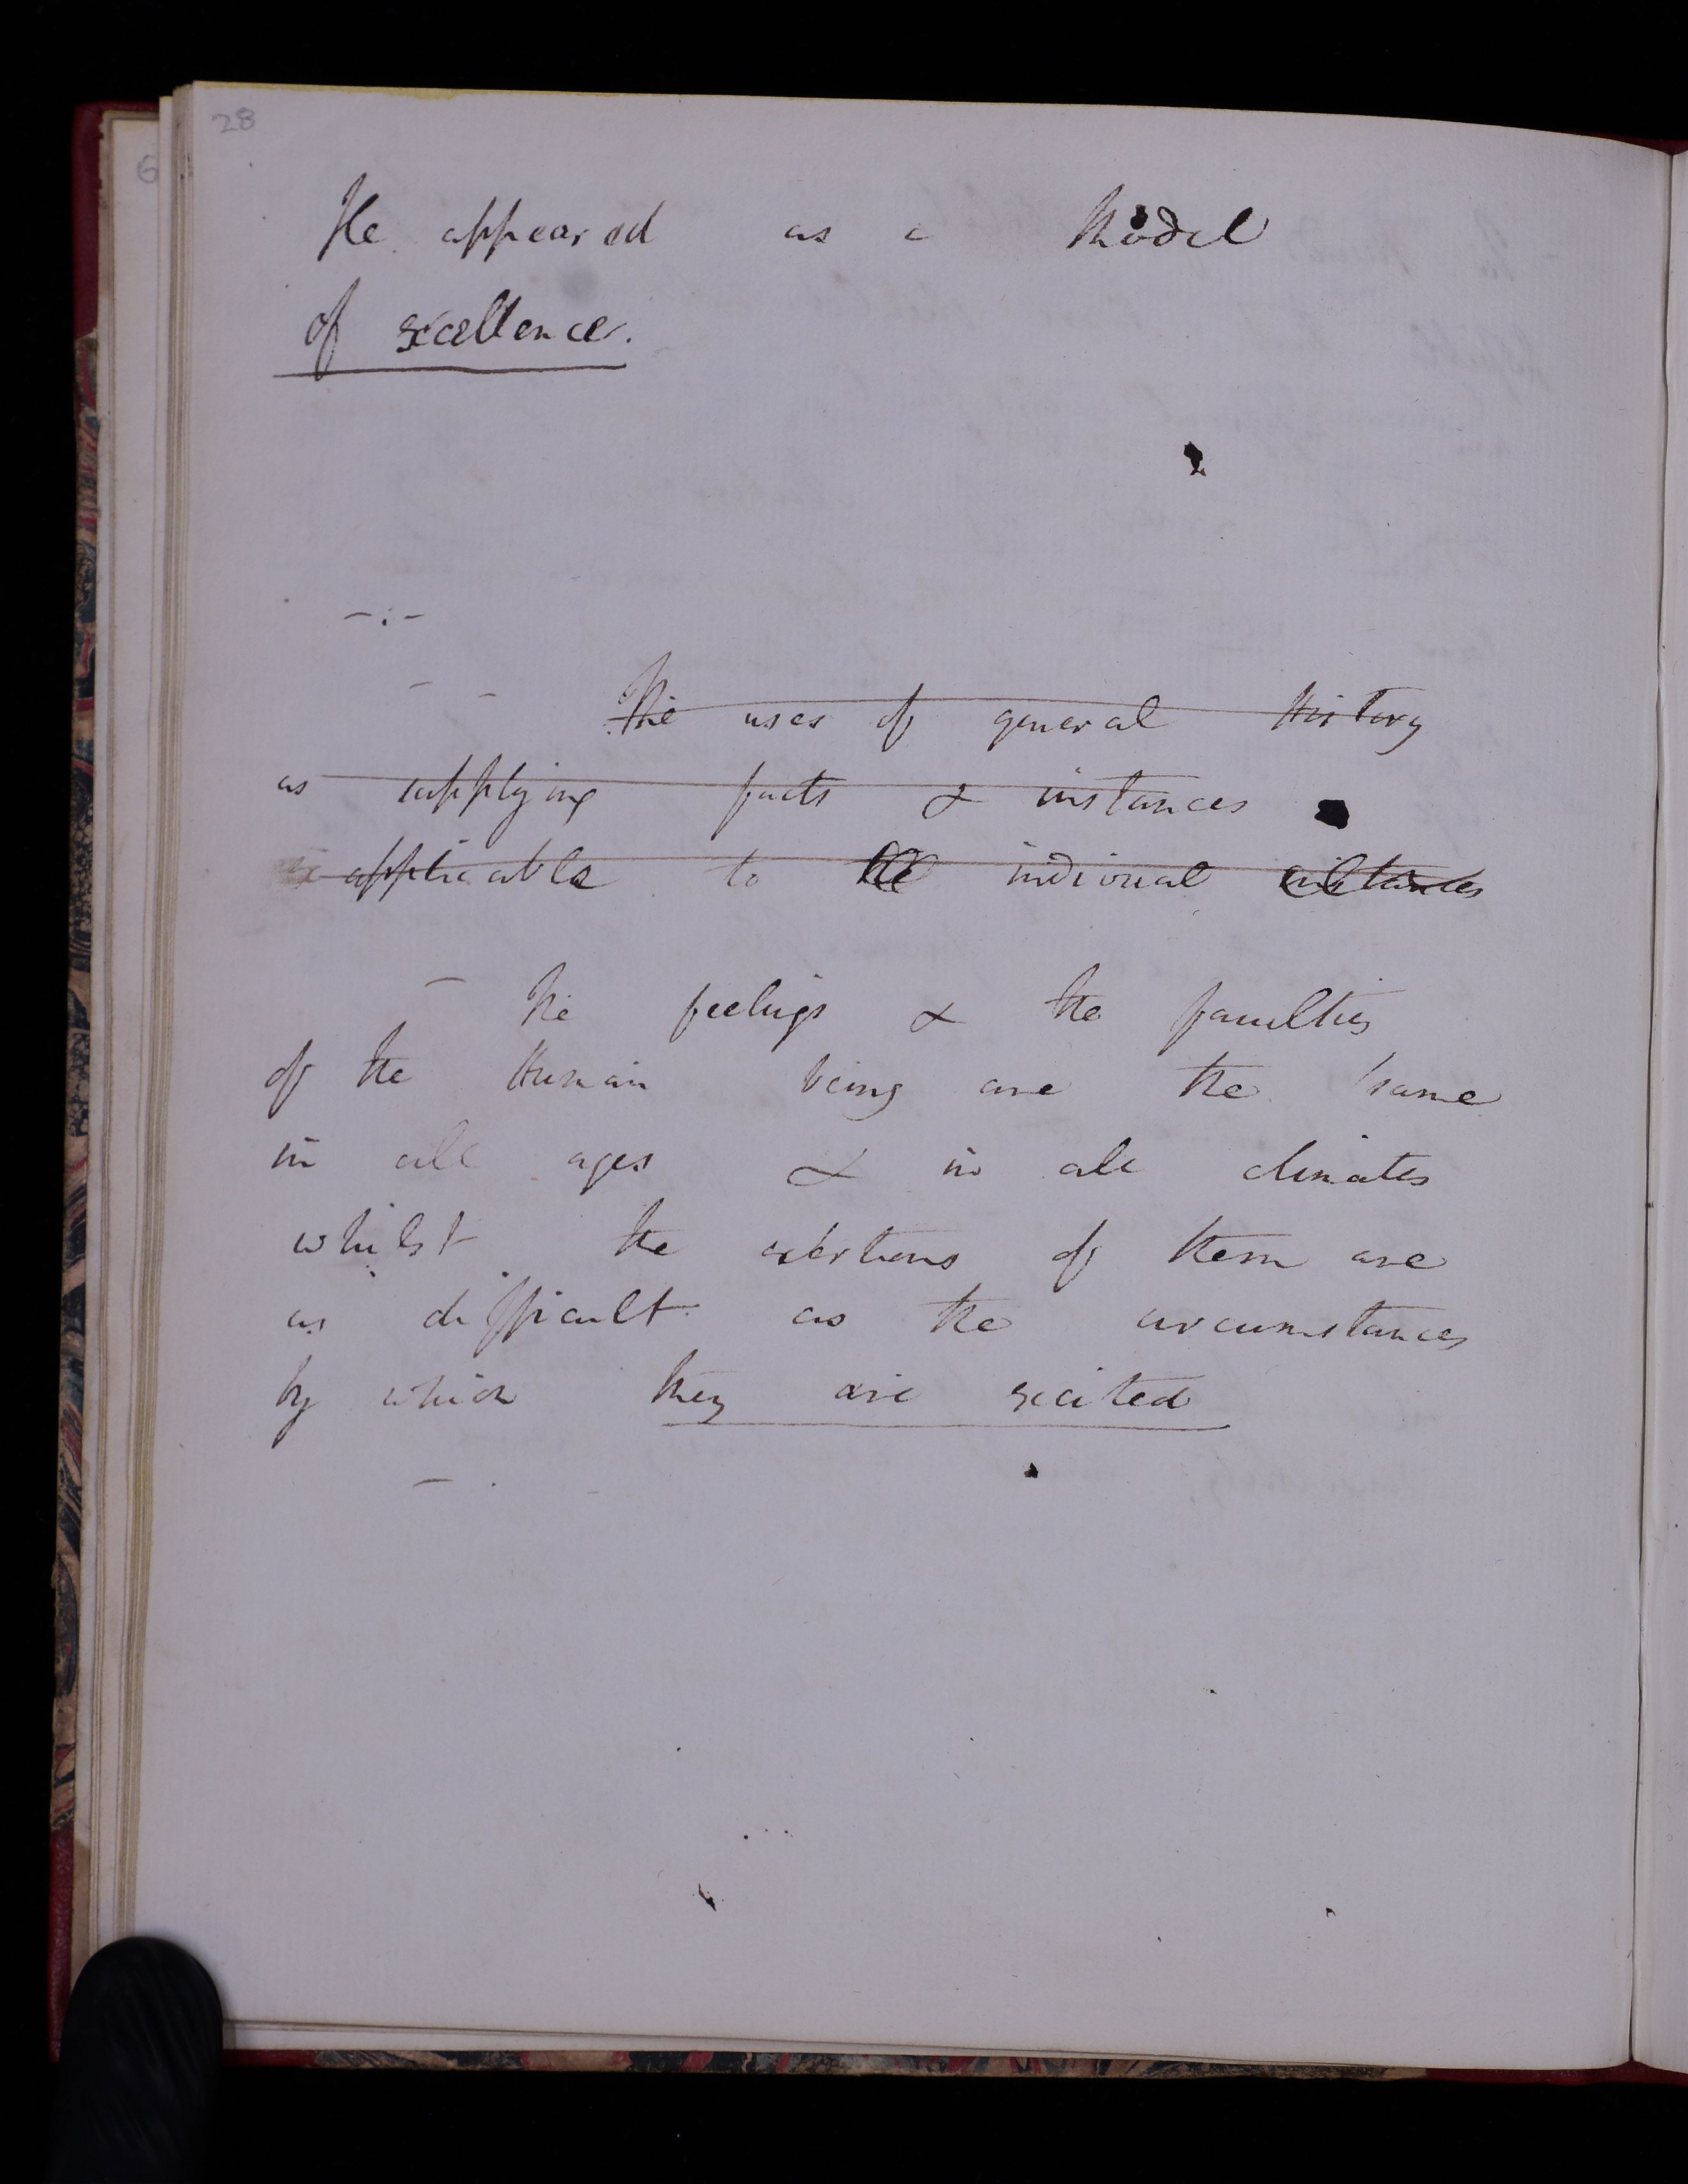 28
6
He appeared as a Model
of excellence.
-:-
- - The uses of general History
as supplying facts & instances
applicable to the indivual
- The feelings & the faculties
of the Human being are the same
in all ages & in all climates
whilst the exertions of them are
as difficult as the circumstances
by which they are excited
-